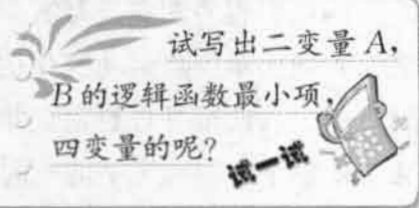 试写出二变量 A,
B 的逻辑函数最小项,
四变量的呢?
试一试